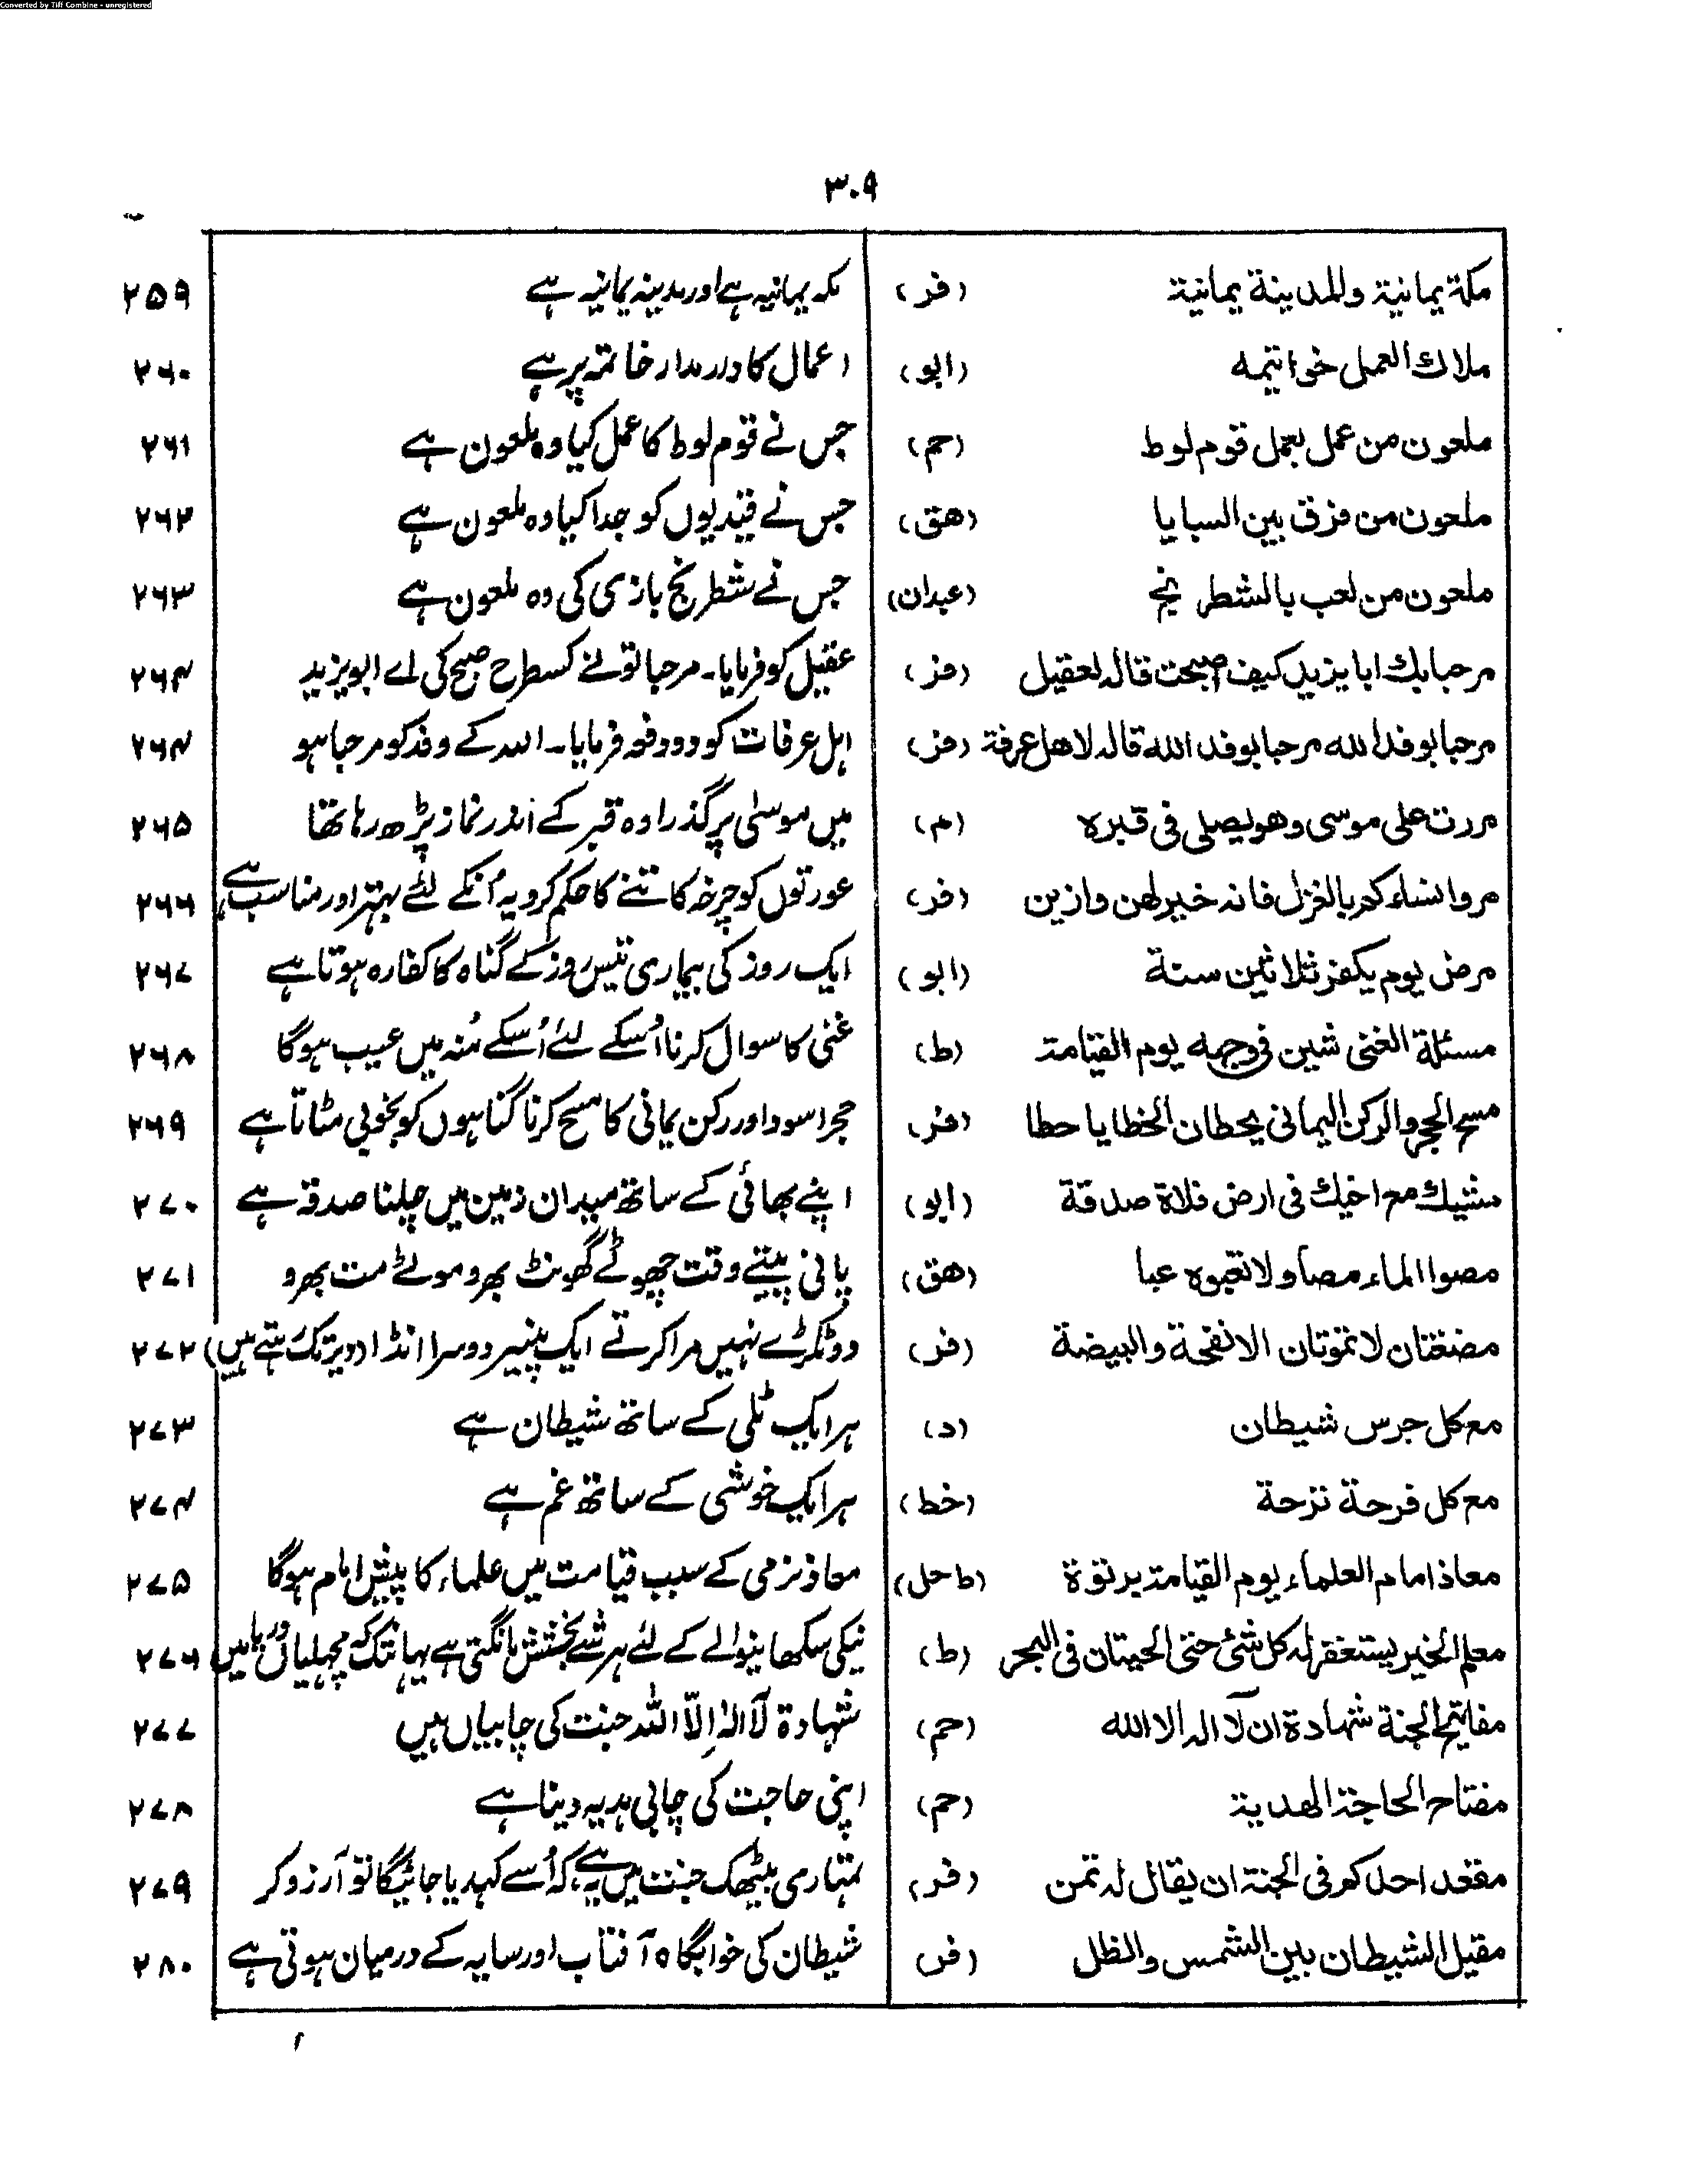 Converted by Tiff Combine - unregistered
۳۰۹
مکة یمانیة والمدینة یمانیة (فر) مکہ یمانیہ ہے اور مدینہ یمانیہ ہے ۲۵۹
ملاك العمل خواتیمه (ابو) اعمال کا دارمدار خاتمہ پر ہے ۲۶۰
ملعون من عمل بعمل قوم لوط (حم) جس نے قوم لوط کا عمل کیا وہ ملعون ہے ۲۶۱
ملعون من فرق بین السبایا (هق) جس نے قیدیوں کو جدا کیا وہ ملعون ہے ۲۶۲
ملعون من لعب بالشطرنج (عبدان) جس نے شطرنج بازی کی وہ ملعون ہے ۲۶۳
مرحبا بك ابا یزید کیف اصبحت قاله لعقیل (فر) عقیل کو فرمایا۔ مرحبا تونے کسطرح صبح کی اے ابو یزید ۲۶۴
مرحبا بوفد الله مرحبا بوفد الله قاله لاهل عرفة (فر) اہل عرفات کو دو دفعہ فرمایا۔ اللہ کے وفد کو مرحبا ہو ۲۶۴
مررت علی موسی وهو یصلی فی قبره (م) میں موسیٰ پر گذرا وہ قبر کے اندر نماز پڑھ رہا تھا ۲۶۵
مروا نساءکم بالغزل فانه خیر لهن وازین (فر) عورتوں کو چرخہ کاتنے کا حکم کرو یہ اُنکے لئے بہتر اور مناسب ہے ۲۶۶
مرض یوم یکفر ثلاثین سنة (ابو) ایک روز کی بیماری تیس روز کے گناہ کا کفارہ ہوتا ہے ۲۶۷
مسئلة الغنی شین فی وجهه یوم القیامة (ط) غنی کا سوال کرنا اُسکے لئے اُسکے مُنہ میں عیب ہوگا ۲۶۸
مسح الحجر والرکن الیمانی یحطان الخطایا حطا (فر) حجر اسود اور رکن یمانی کا مسح کرنا گناہوں کو بخوبی مٹاتا ہے ۲۶۹
مشیك مع اخیك فی ارض فلاة صدقة (ابو) اپنے بھائی کے ساتھ میدان زمین میں چلنا صدقہ ہے ۲۷۰
مصوا الماء مصا ولا تعبوه عبا (هق) پانی پیتے وقت چھوٹے گھونٹ بھرو موٹے مت بھرو ۲۷۱
مضغتان لا تموتان الانفحة والبیضة (فر) دو ٹکڑے نہیں مرا کرتے ایک پنیر دوسرا انڈا (دیر تک رہتے ہیں) ۲۷۲
مع کل جرس شیطان (د) ہر ایک ٹلی کے ساتھ شیطان ہے ۲۷۳
مع کل فرحة ترحة (خط) ہر ایک خوشی کے ساتھ غم ہے ۲۷۴
معاذ امام العلماء یوم القیامة برتوة (ط حل) معاذ نرمی کے سبب قیامت میں علماء کا پیش امام ہوگا ۲۷۵
معلم الخیر یستغفر له کل شئ حتی الحیتان فی البحر (ط) نیکی سکھانیوالے کے لئے ہر شے بخشش مانگتی ہے یہانتک کہ مچھلیاں دریا میں ۲۷۶
مفاتیح الجنة شهادة ان لآ اله الا الله (حم) شہادة لَآ اِلٰہ اِلّا اللّٰہ جنت کی چابیاں ہیں ۲۷۷
مفتاح الحاجة الهدیة (حم) اپنی حاجت کی چابی ہدیہ دینا ہے ۲۷۸
مقعد احدکم فی الجنة ان یقال له تمن (فر) تمہاری بیٹھک جنت میں یہ ہے کہ اُسے کہدیا جائیگا تو آرزو کر ۲۷۹
مقیل الشیطان بین الشمس والظل (فر) شیطان کی خوابگاہ آفتاب اور سایہ کے درمیان ہوتی ہے ۲۸۰